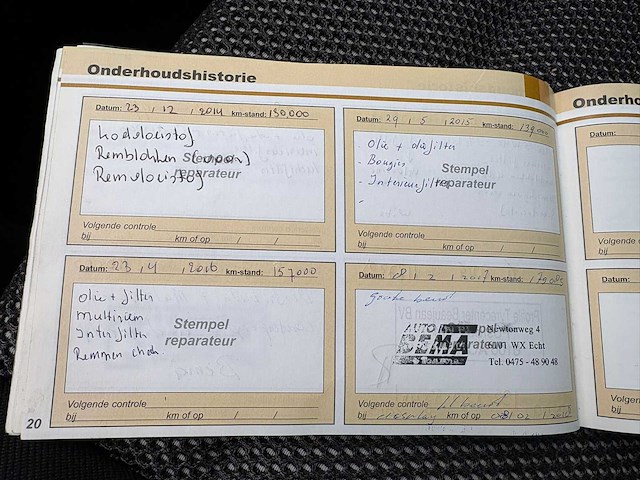 Onderhoudshistorie
Datum: 23 / 12 / 2014 km-stand:
koelvloeistof
Remblokken (voor)
Remvloeistof
Stempel
reparateur
Volgende controle
bij km of op / /
Datum: 29 / 5 / 2015 km-stand: 139.000
- Olie + oliefilter
- Bougies
- Interieurfilter
-
Stempel
reparateur
Volgende controle
bij km of op / /
Datum: 23 / 4 / 2016 km-stand: 157000
olie + filter
multiriem
Inter filter
Remmen
Stempel
reparateur
Volgende controle
bij km of op / /
Datum: 8 / 2 / 2017 km-stand:
Grote beurt
AUTO
Newtonweg 4
WX Echt
Tel: 0475 - 48 90 48
Volgende controle
bij km of op 02
20
Onderho
Datum:
Volgende
bij
Datum:
Volgende
bij